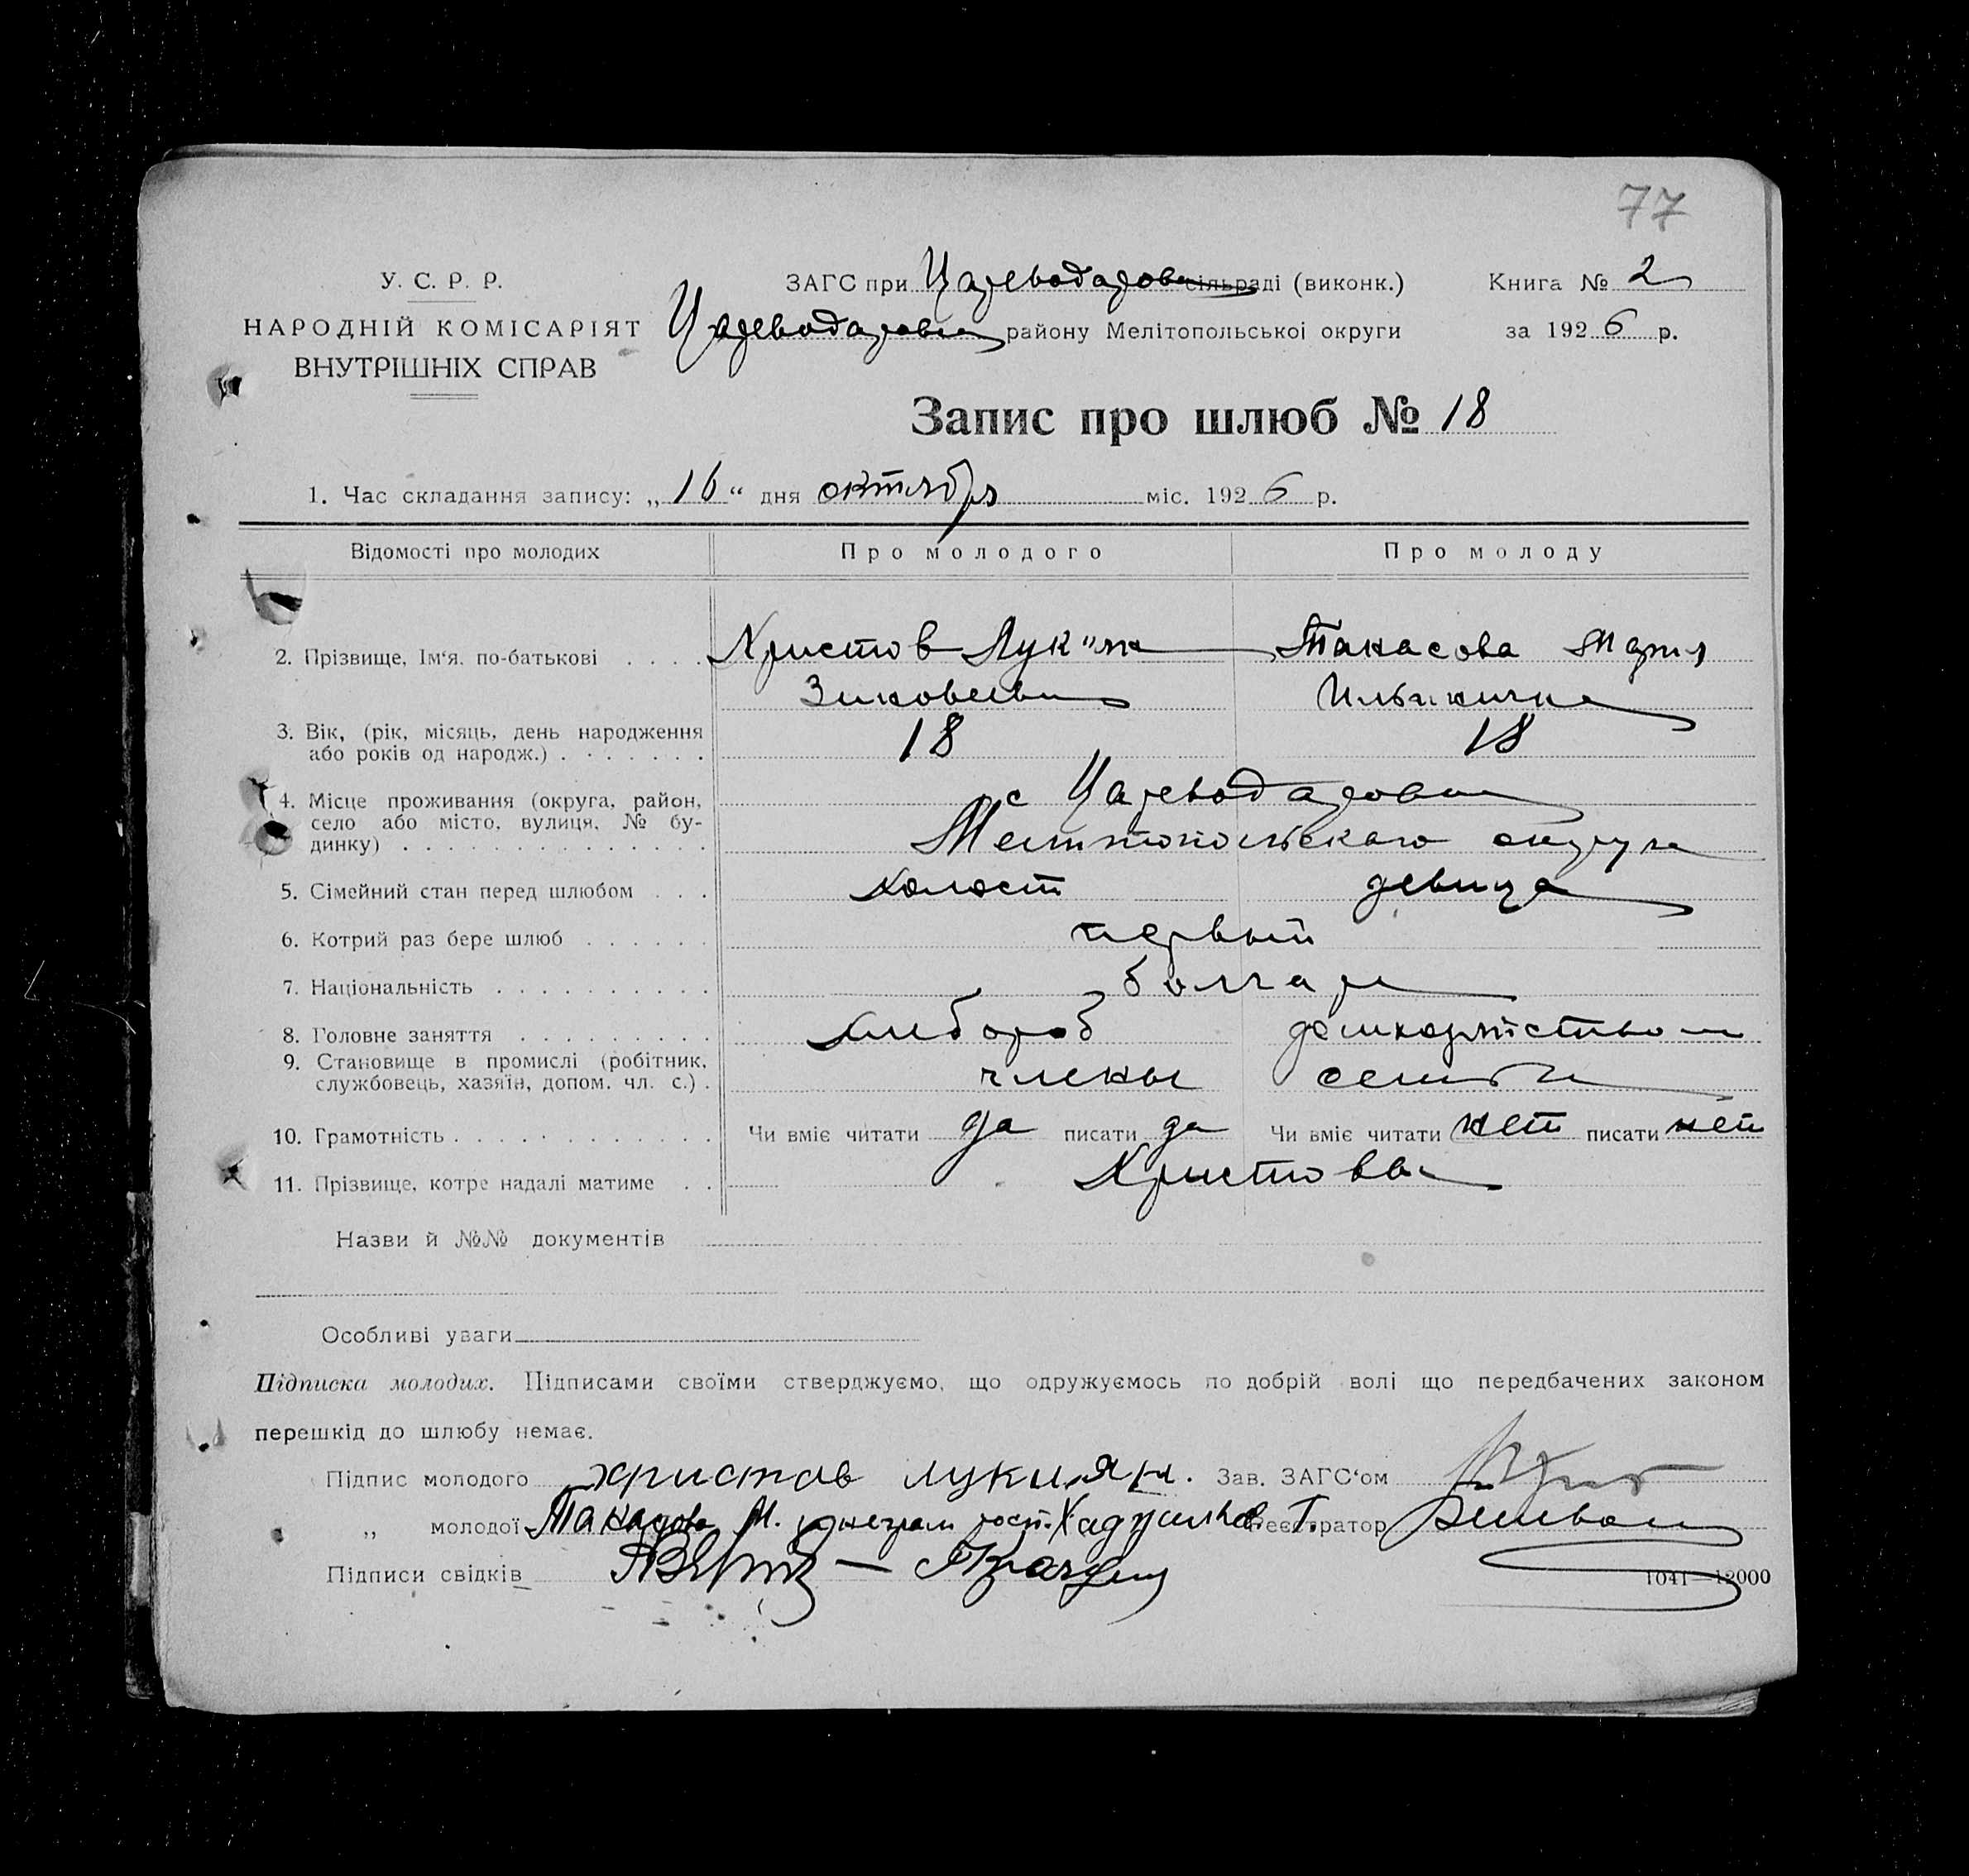 77
У. С. Р. Р.
НАРОДНІЙ КОМІСАРІЯТ
ВНУТРІШНІХ СПРАВ
ЗАГС при Цареводаровс сільраді (виконк.)
Книга № 2
Цареводаровск району Мелітопольської округи
за 1926 р.
Запис про шлюб № 18
1. Час складання запису: „16“ дня октября міс. 1926 р.
Відомості про молодих Про молодого Про молоду
2. Прізвище, Ім‘я, по-батькові . . . . Христов Лукиян Такасова Мария
Зиновеевич Ильинична
3. Вік, (рік, місяць, день народження
або років од народж.) . . . . . . . 18 18
4. Місце проживання (округа, район, с Цареводаровка
село або місто, вулиця, № бу-
динку) . . . . . . . . . . . . . . Мелитопольскаго округа
5. Сімейний стан перед шлюбом . . . холост девица
6. Котрий раз бере шлюб . . . . . . первый
7. Національність . . . . . . . . . . болгаре
8. Головне заняття . . . . . . . . . хлебороб домхозяйством
9. Становище в промислі (робітник,
службовець, хазяїн, допом. чл. с.) . члены семьи
10. Грамотність . . . . . . . . . . . . Чи вміє читати да писати да Чи вміє читати нет писати нет
11. Прізвище, котре надалі матиме . . Христовы
Назви й №№ документів
Особливі уваги
Підписка молодих. Підписами своїми стверджуємо, що одружуємось по добрій волі що передбачених законом
перешкід до шлюбу немає.
Підпис молодого христов лукиян. Зав. ЗАГС‘ом
„ молодої Такасова М. Т. Реєстратор
Підписи свідків
1041—12000